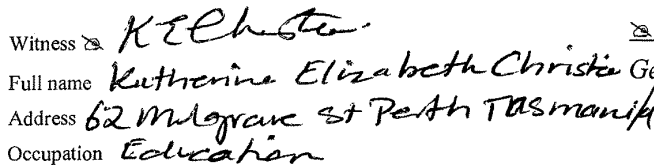 Witness KEChristie
Full name Katherine Elizabeth Christie Ge
Address 62 Mulgrave St Perth TASmania
Occupation Education